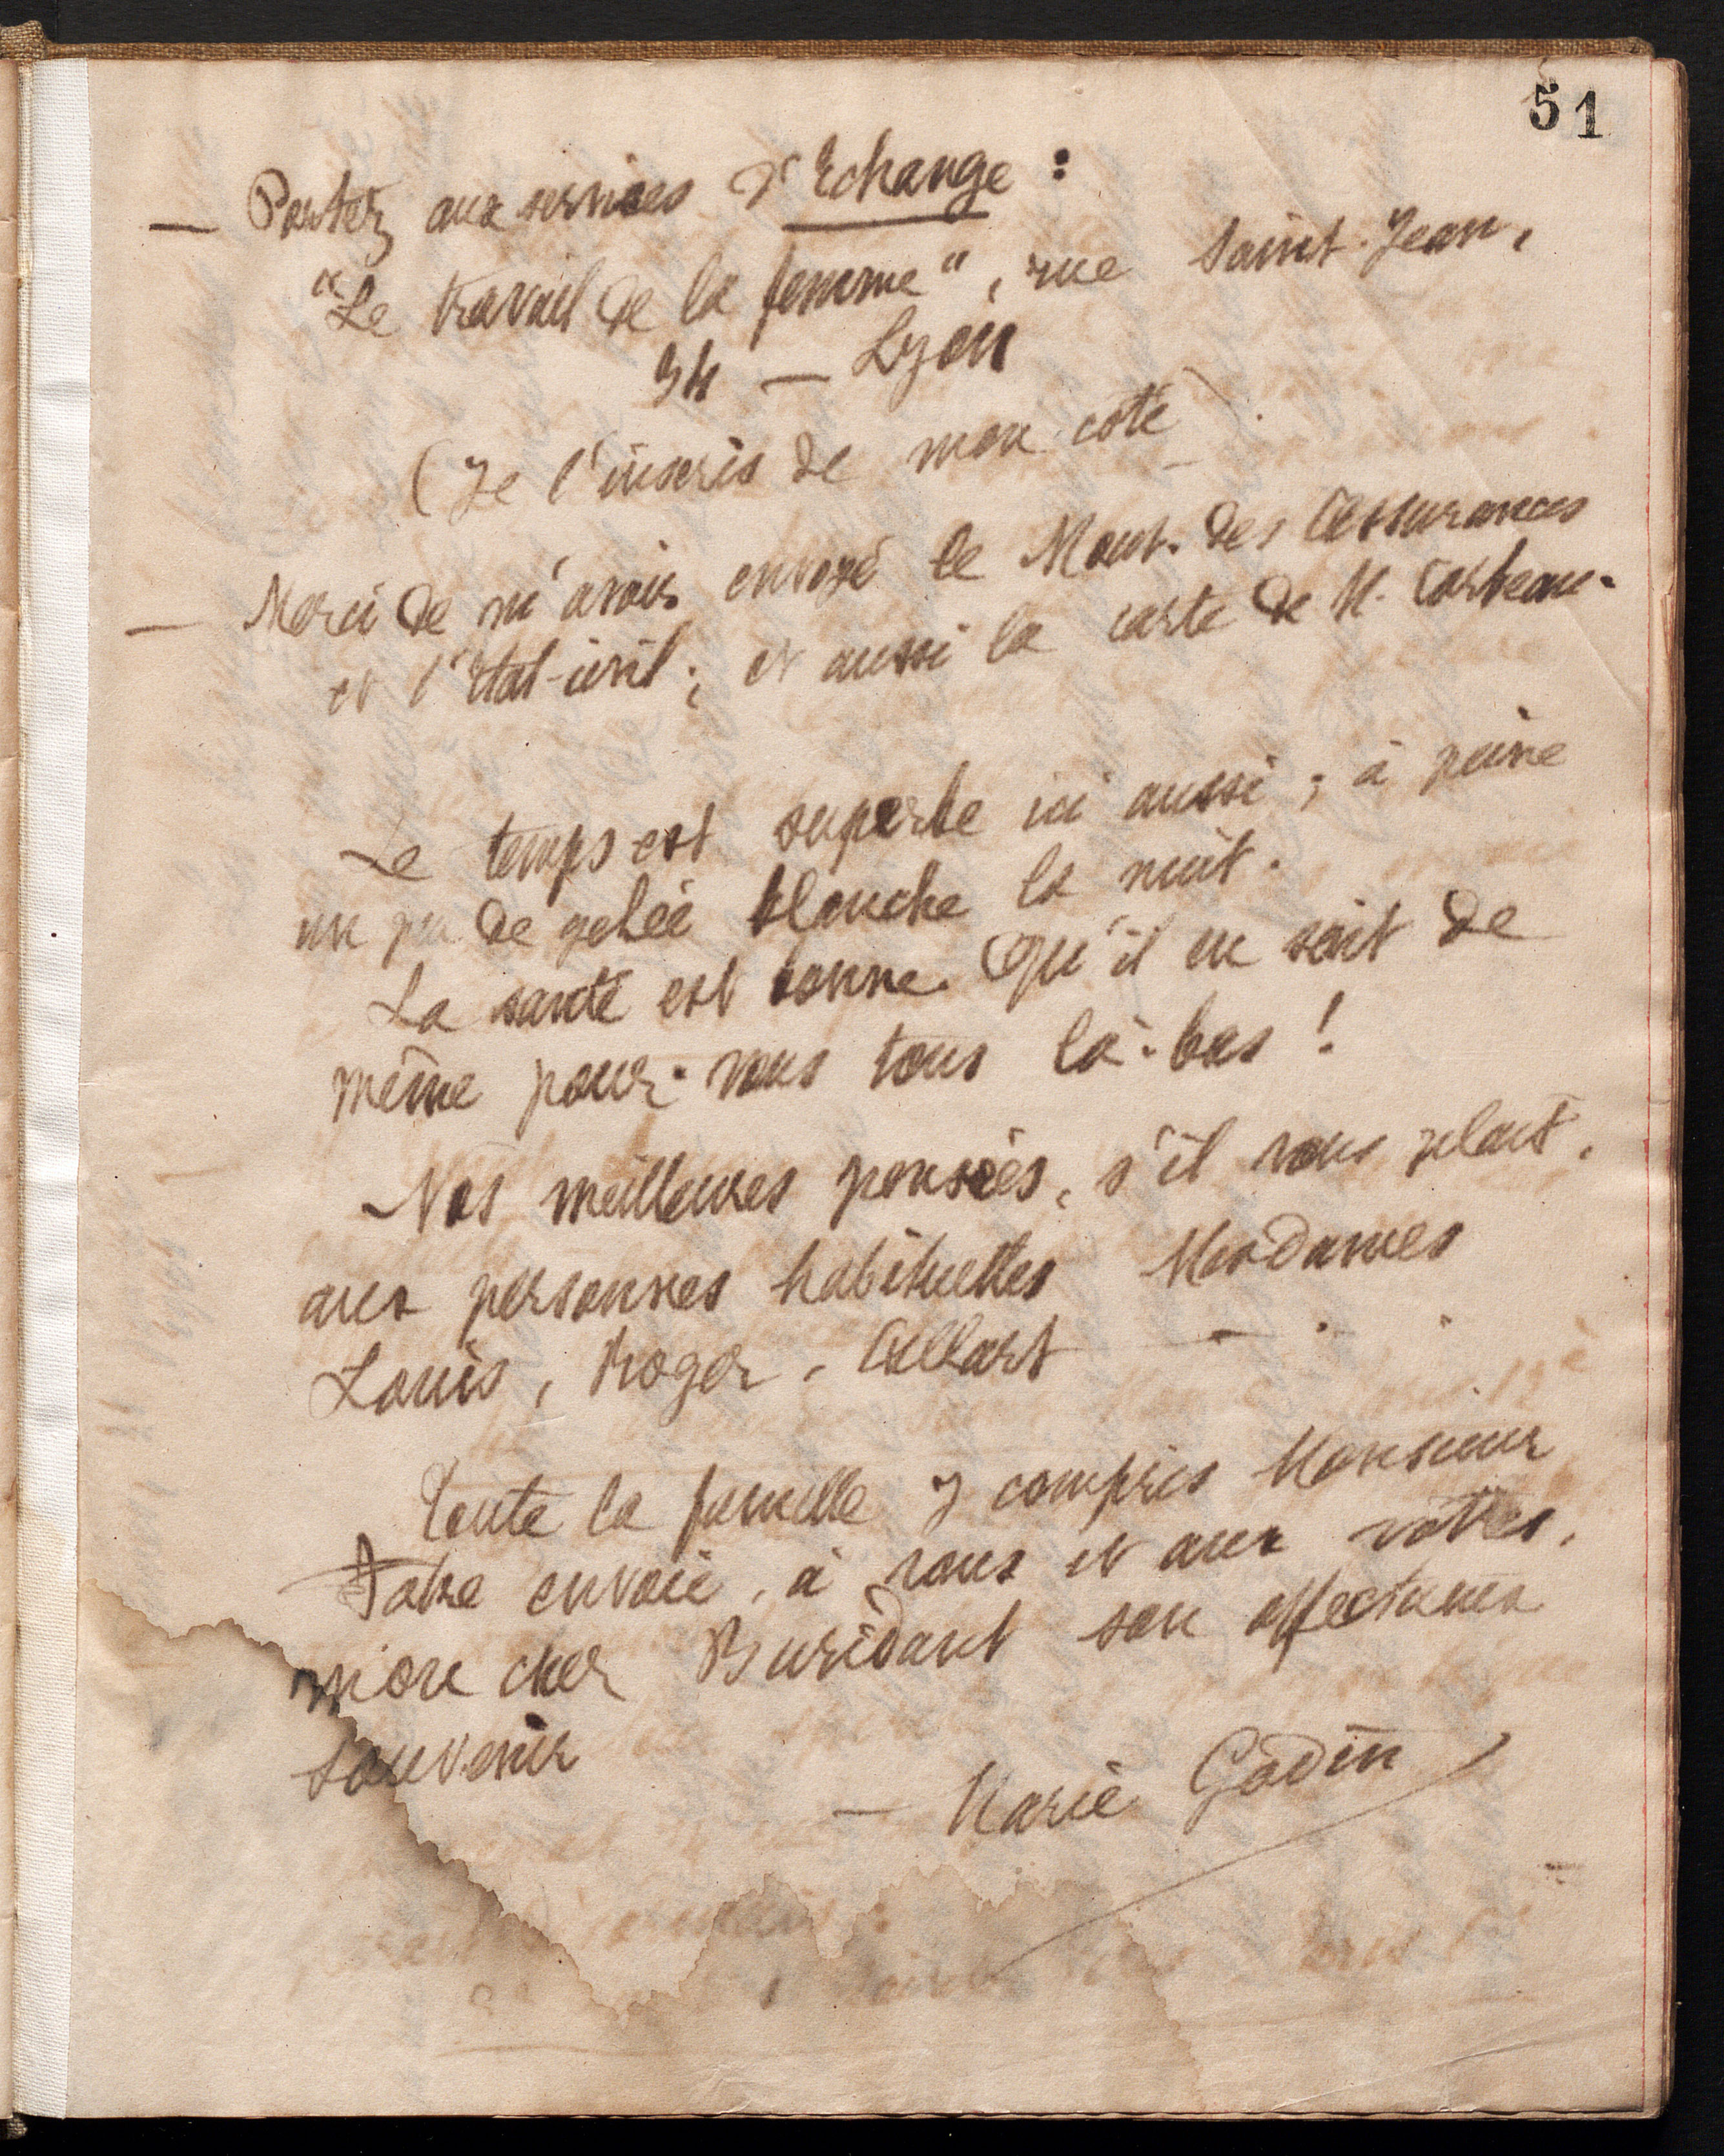 51
— Portez aux services d'Echange :
"Le travail de la femme", rue Saint-Jean,
34 — Lyon
(Je l'inscris de mon côté).
— Merci de m'avoir envoyé le Monit. des Assurances
et l'Etat-civil ; et aussi la carte de M.
Le temps est superbe ici aussi ; à peine
un peu de gelée blanche la nuit.
La santé est bonne. Qu'il en soit de
même pour vous tous là-bas !
Nos meilleures pensées, s'il vous plait,
aux personnes habituelles Mesdames
Louis, Roger, Allart —
Toute la famille y compris Monsieur
envoie, à vous et aux vôtres,
mon cher Buridant son affectueux
souvenir
— Marie Godin